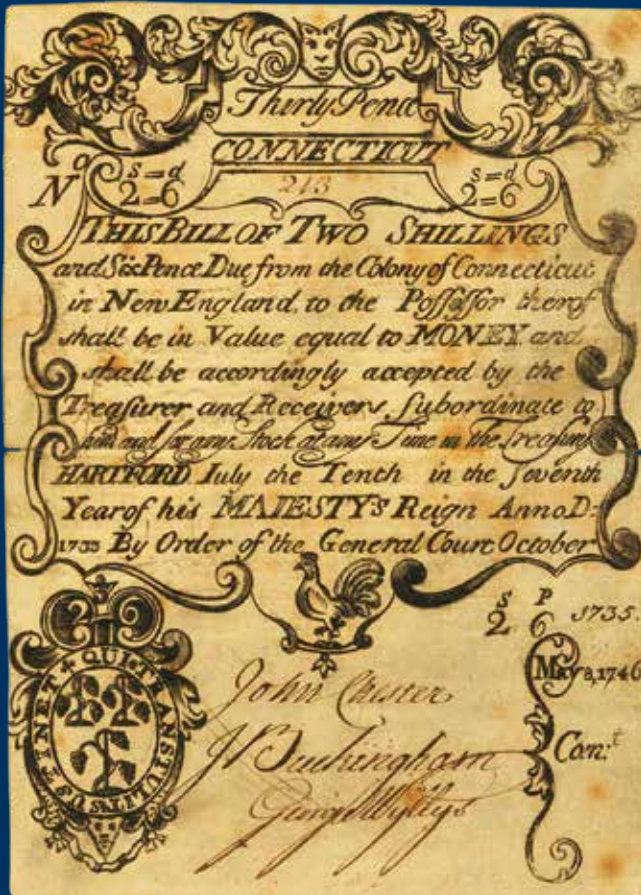 Thirty Pence
CONNECTICUT
No 213
s=d
2=6
s=d
2=6
THIS BILL OF TWO SHILLINGS
and Six Pence Due from the Colony of Connecticut
in New England, to the Possessor therof
shall be in Value equal to MONEY and
shall be accordingly accepted by the
Treasurer and Receivers Subordinate to
him and for any Stock at any Time in the Treasury
HARTFORD July the Tenth in the Seventh
Year of his MAIESTY'S Reign Anno D:
1733 By Order of the General Court October
S P
2 6 1735.
2 6
QUI TRANSTULIT SUSTINET
May 8, 1740
Con:t
John Chester
J Buckingham
George Wyllys